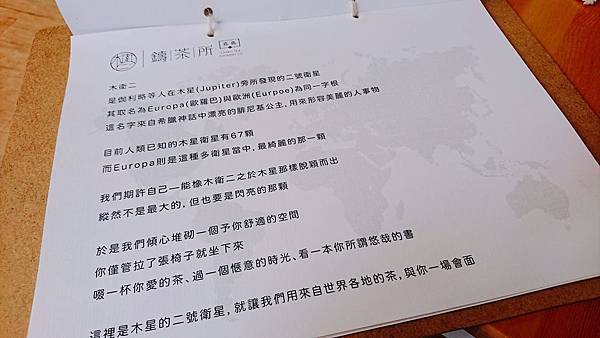 鑄茶所
木衛二
是伽利略等人在木星(Jupiter)旁所發現的二號衛星
其取名為Europa(歐羅巴)與歐洲(Eurpoe)為同一字根
這名字來自希臘神話中漂亮的腓尼基公主，用來形容美麗的人事物
目前人類已知的木星衛星有67顆
而Europa則是這種多衛星當中，最綺麗的那一顆
我們期許自己—能橡木衛二之於木星那樣脫穎而出
縱然不是最大的，但也要是閃亮的那顆
於是我們傾心堆砌一個予你舒適的空間
你僅管拉了張椅子就坐下來
啜一杯你愛的茶、過一個愜意的時光、看一本你所謂悠哉的書
這裡是木星的二號衛星，就讓我們用來自世界各地的茶，與你一場會面